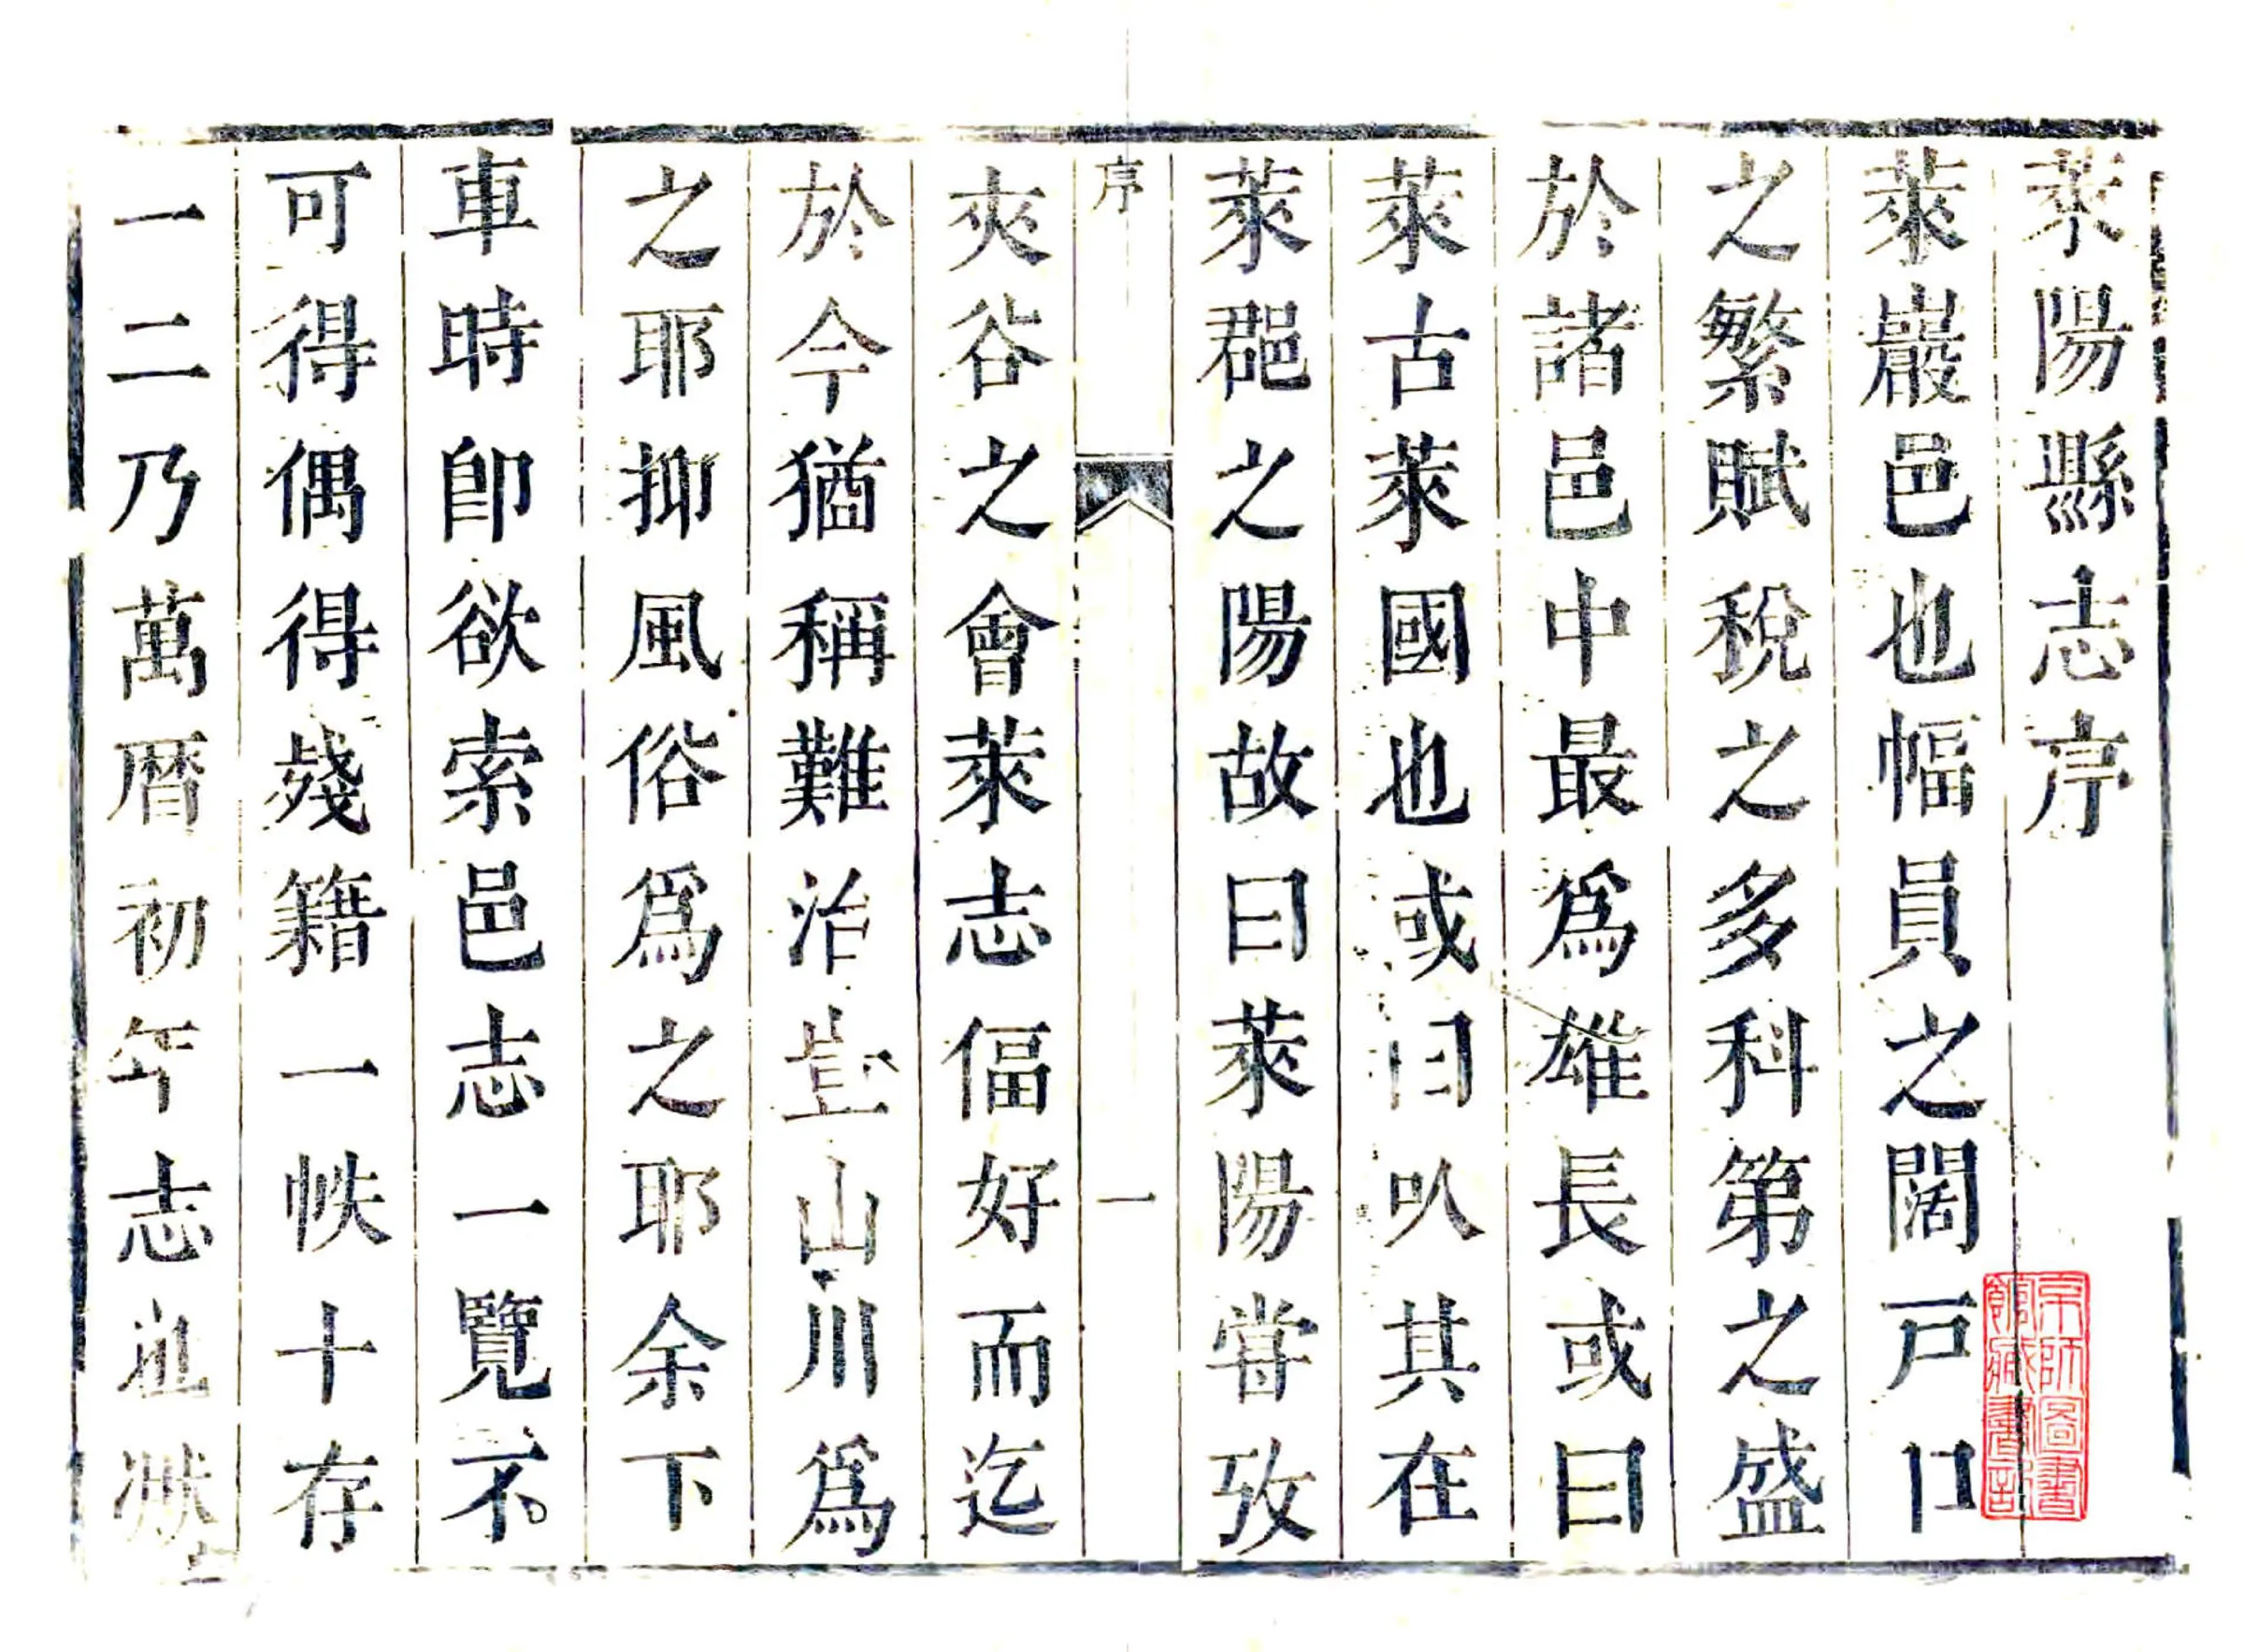 萊陽縣志序
萊巖邑也幅員之闊戸口
之繁賦稅之多科第之盛
於諸邑中最爲雄長或曰
萊古萊國也或曰㕥其在
萊郡之陽故曰萊陽甞攷
序
一
夾谷之會萊志偪好而迄
於今猶稱難治豈山川爲
之耶抑風俗爲之耶余下
車時卽欲索邑志一覽不
可得偶得殘籍一帙十存
一二乃萬曆初年志也
京師圖書
館藏書記